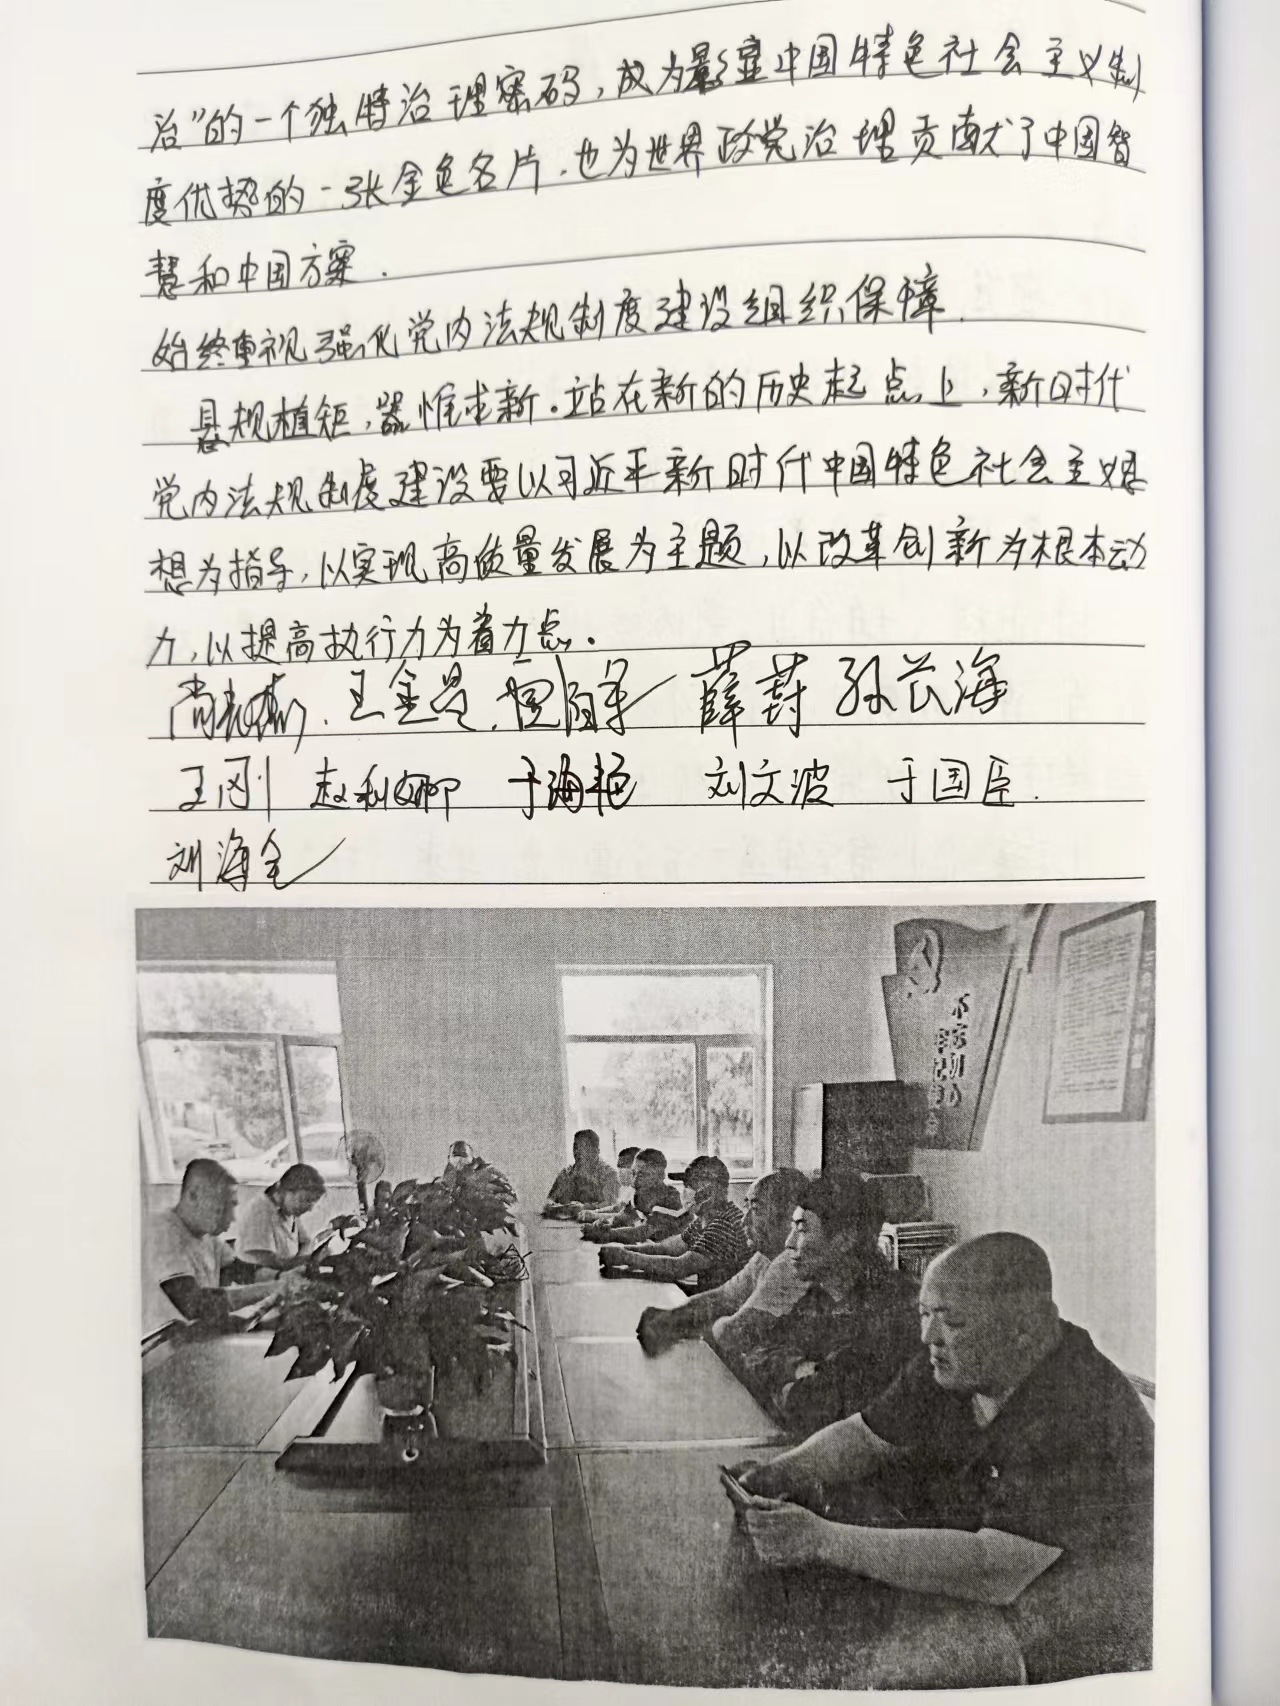 治”的一个独特治理密码，成为彰显中国特色社会主义制
度优势的一张金色名片．也为世界政党治理贡献了中国智
慧和中国方案．
始终重视强化党内法规制度建设组织保障．
悬规植矩，器惟求新。站在新的历史起点上，新时代
党内法规制度建设要以习近平新时代中国特色社会主义思
想为指导，以实现高质量发展为主题，以改革创新为根本动
力，以提高执行力为着力点。
王金昌 薛封 孙长海
王刚 赵利卿 于海艳 刘文波 于国臣
刘海全
不忘初心
牢记使命